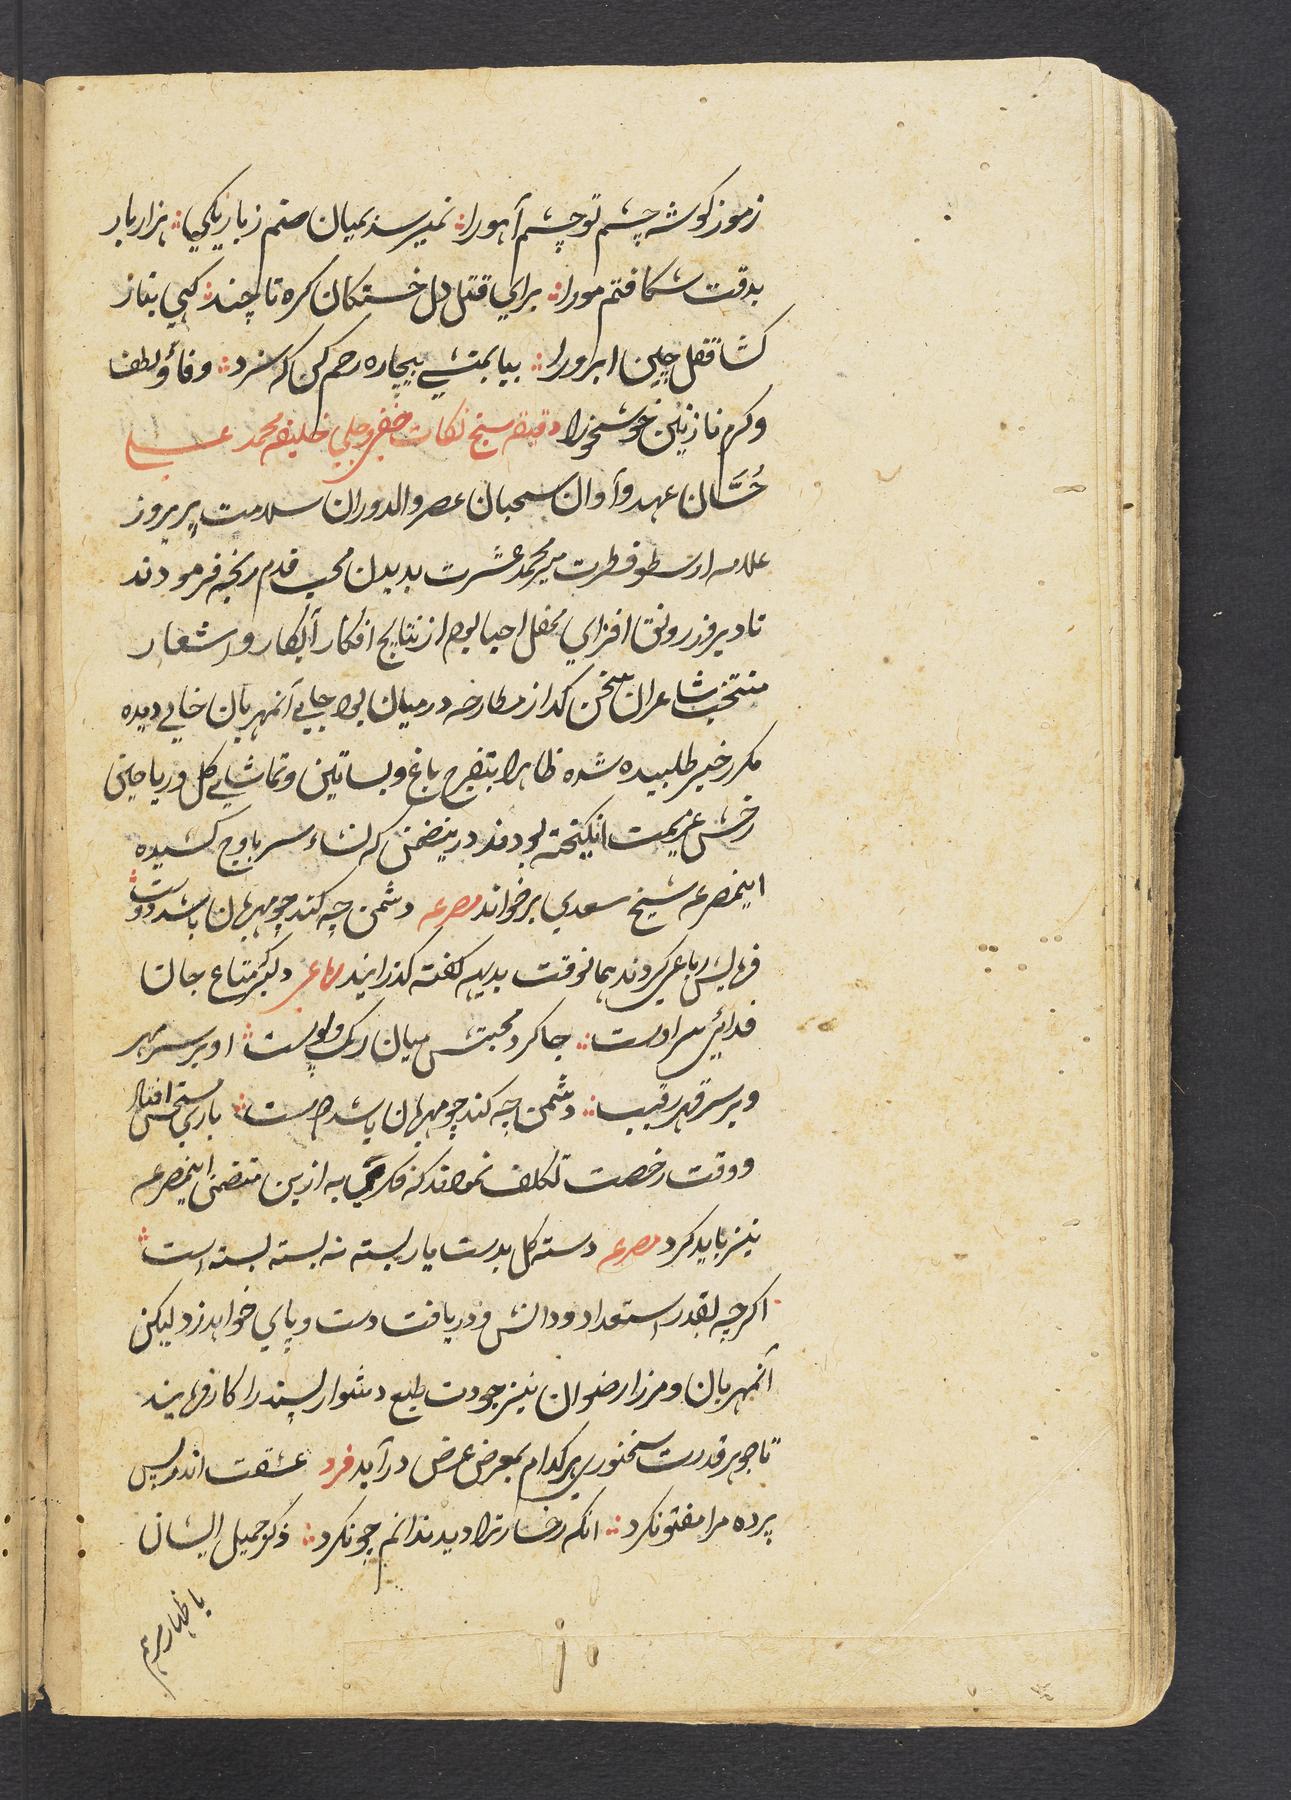 زموز کوشه چشم تو چشم آهورا ؞ نمیرسد بمیان صنم زباریکی ؞ هزار بار
بدقت شکافتم مورا ؞ برای قتل دل خستکان کره تا چند ؞ کهی بناز
کشا قفل چین ابرورا ؞ بیا بمنشی بیچاره رحم کن که سزد ؞ وفا و لطف
و کرم نازنین خوشخورا دقیقه سنج نکات خفی و جلی خلیفه محمد علی
حُسَّان عهد و آوان سحبان عصر والدوران سلامت پریروز
علامه ارسطو فطرت میر محمد عشرت بدیدن محب قدم رنجه فرمودند
تا دیر فزر رونق افزای محفل احبا بوده از نتایج افکار آبکار و اشعار
منتخب شاعران سخن کداز مطارحه در میان بود جای آنمهربان خالی دیده
مکرر خبر طلبیده شده ظاهرا بتفرج باغ و بساتین و تماشای کل و ریاحین
رخش عزیمت انکیخته بودند درینضمن که نشاء سر باوج کشیده
اینمصرعه شیخ سعدی برخواند مصرعه دشمن چه کند چو مهربان باشد دوست ؞
فرمایش رباعی کردند همانوقت بدیهه کفته کذرانید رباعی دلبر که متاع جان
فدائی سر اوست ؞ جا کرد محبتش میان رک و پوست ؞ او بر سر مهر
و بر سر قهر رقیب ؞ دشمن چه کند چو مهربان باشد دوست ؞ باری مستحسن افتاد
و وقت رخصت تکلف نمودند که فکری به ازین متضمن اینمصرعه
نیز باید کرد مصرعه دسته کل بدست یار بسته نه بسته بسته است ؞
اکرچه بقدر استعداد و دانش و دریافت دست و پای خواهد زد لیکن
آنمهربان و مرزا رضوان نیز جودت طبع دشوار پسند را کار فرمایند
تا جوهر قدرت سخنوری هر کدام بمعرض عرض در آید فرد عشقت اندر پس
پرده مرا مفتونکرد ؞ انکه رخسار ترا دید ندانم چونکرد ؞ ذکر جمیل ایشان
باظهار مرهم